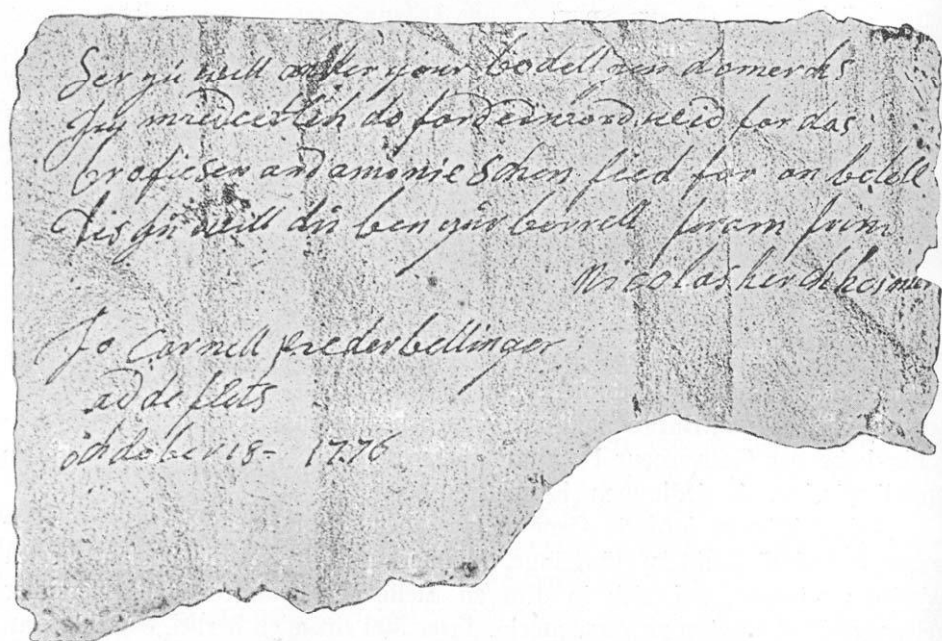 Ser yu will order your bodellyen do merchs
Jmmiedietlih do ford edward weid for das
brofiesen and amonieschen fied for on betell
dis yu will du ben yur berrell foram frind
Nicolas herchheimer
To Carnell pieder bellinger
ad de flets
ochdober 18= 1776